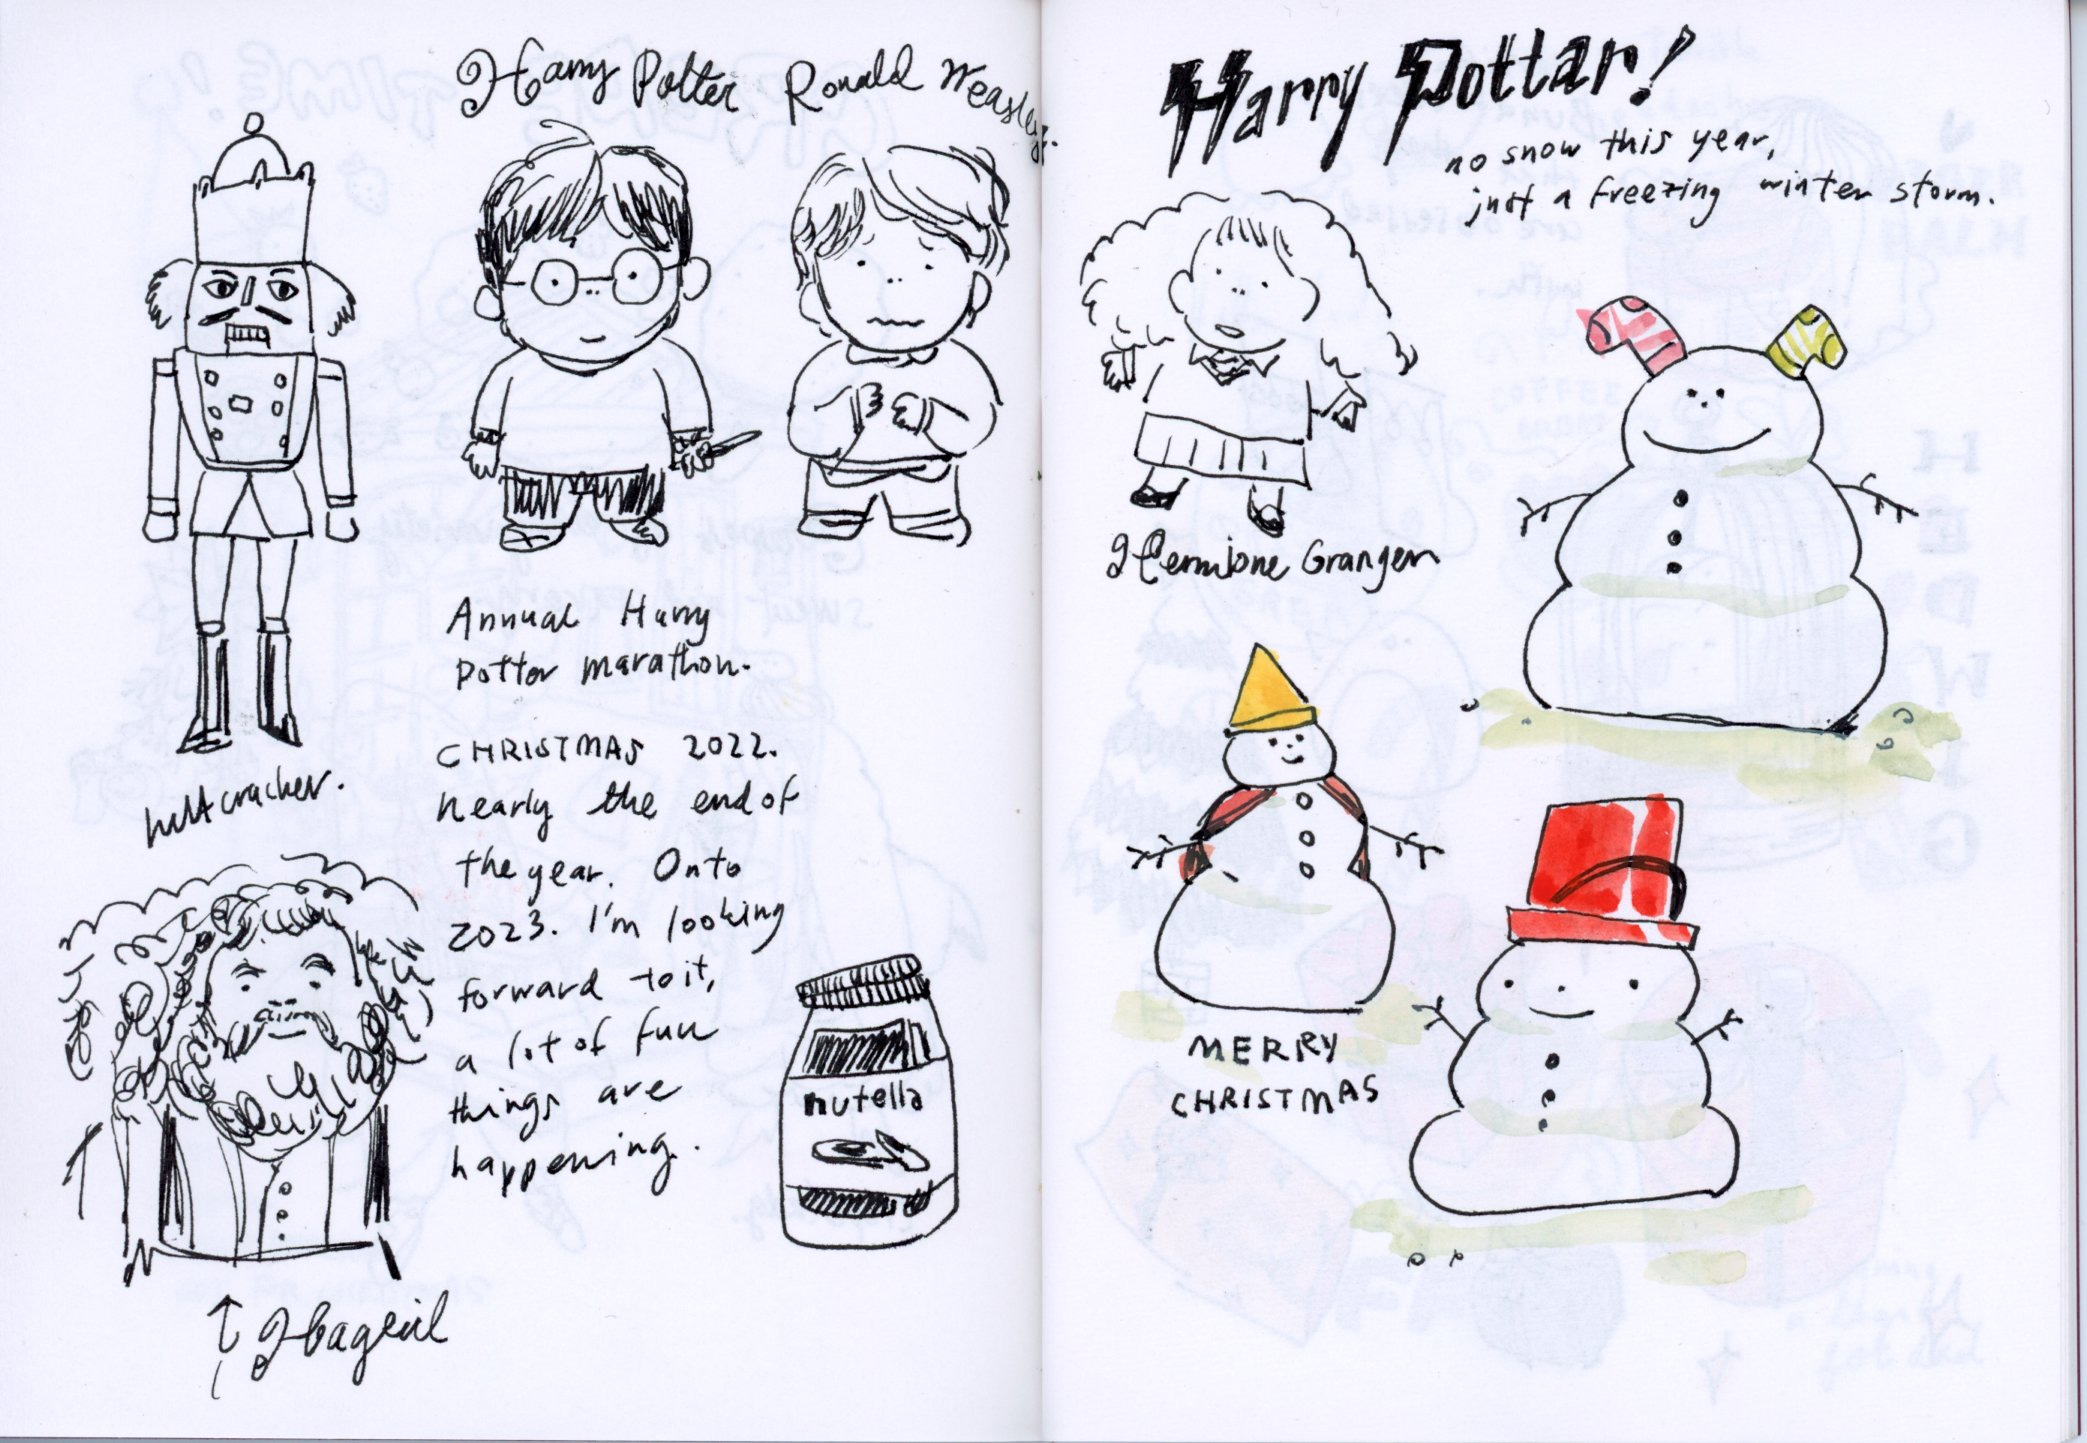 Harry Potter Ronald Weasley.
nutcracker.
Annual Harry
Potter marathon.
CHRISTMAS 2022.
nearly the end of
the year. Onto
2023. I'm looking
forward to it,
a lot of fun
things are
happening.
nutella
↑ Hagrid
Harry Pottar!
no snow this year,
just a freezing winter storm.
Hermione Granger
MERRY
CHRISTMAS